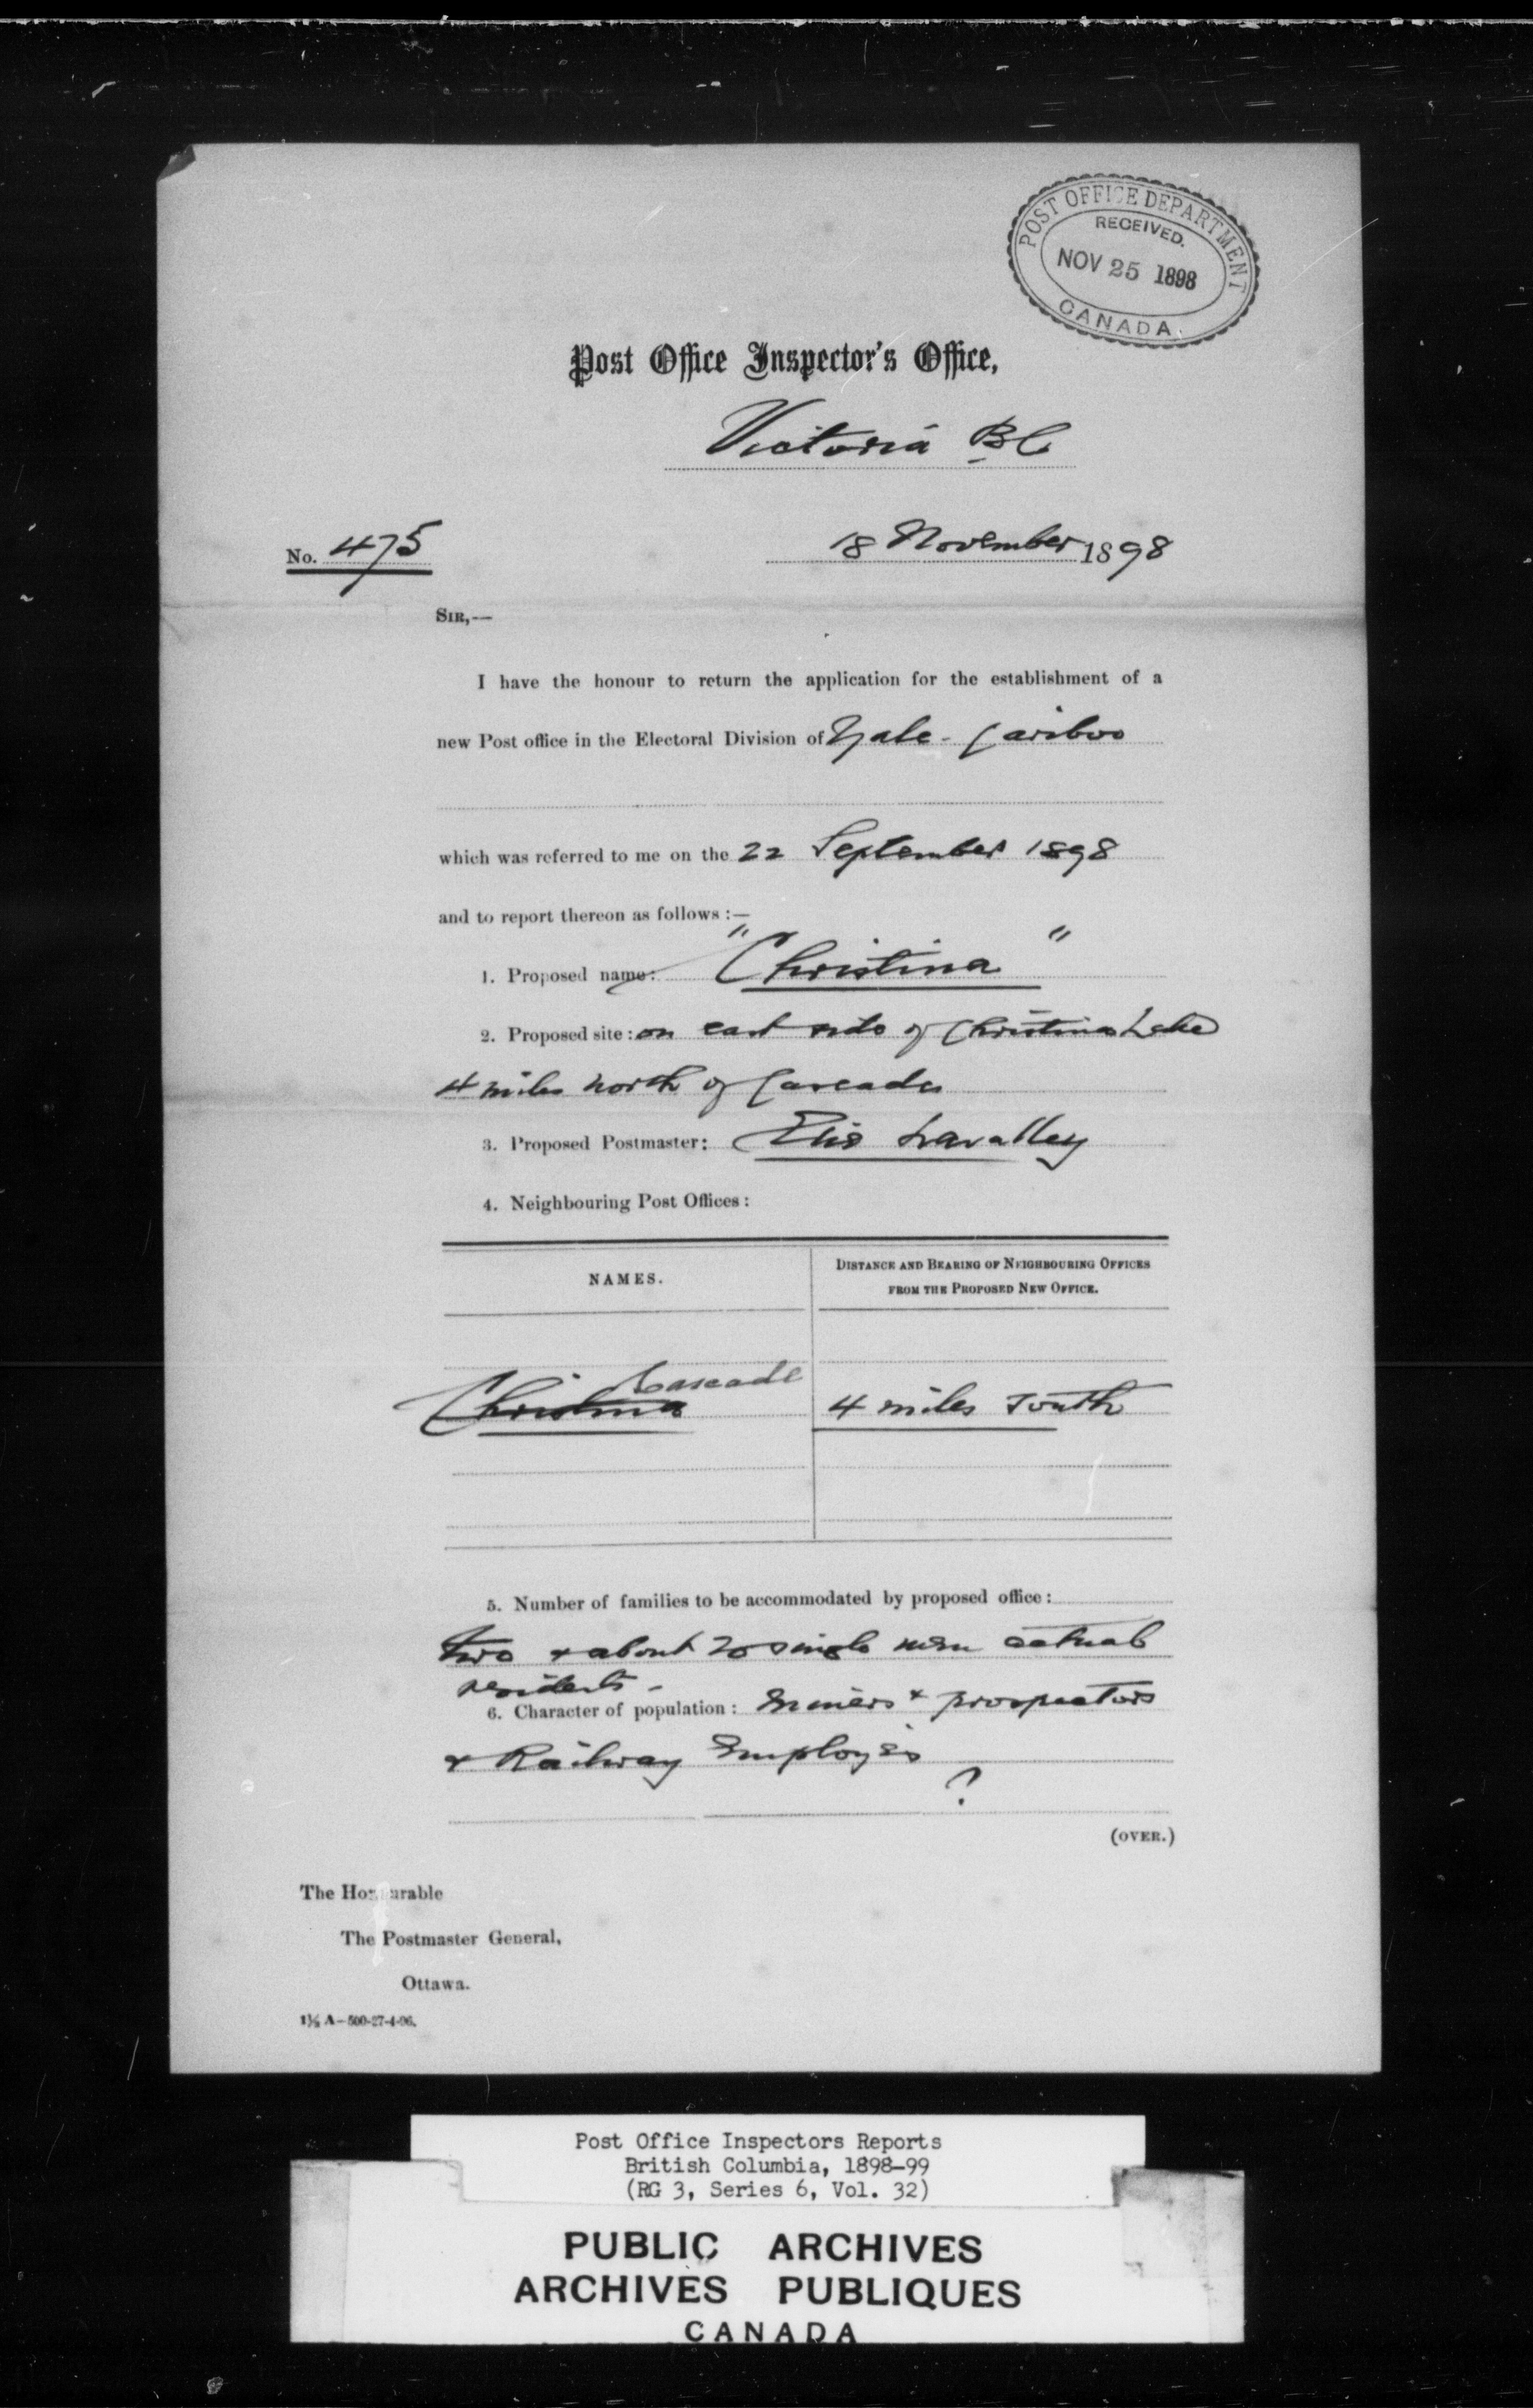 POST OFFICE DEPARTMENT
RECEIVED.
NOV 25 1898
CANADA.
Post Office Inspector's Office,
Victoria BC
No. 475
18 November 1898
SIR,—
I have the honour to return the application for the establishment of a
new Post office in the Electoral Division of Yale - Cariboo
which was referred to me on the 22 September 1898
and to report thereon as follows :—
1. Proposed name: "Christina"
2. Proposed site: on east side of Christina Lake
4 miles north of Cascade
3. Proposed Postmaster: Lavalley
4. Neighbouring Post Offices :
NAMES.
DISTANCE AND BEARING OF NEIGHBOURING OFFICES
FROM THE PROPOSED NEW OFFICE.
Cascade
Christina 4 miles South
5. Number of families to be accommodated by proposed office :
two + about 20 single men actual
residents -
6. Character of population : Miners + prospectors
+ Railway Employés
?
(OVER.)
The Honourable
The Postmaster General,
Ottawa.
A—500-27-4-96.
Post Office Inspectors Reports
British Columbia, 1898-99
(RG 3, Series 6, Vol. 32)
PUBLIC ARCHIVES
ARCHIVES PUBLIQUES
CANADA